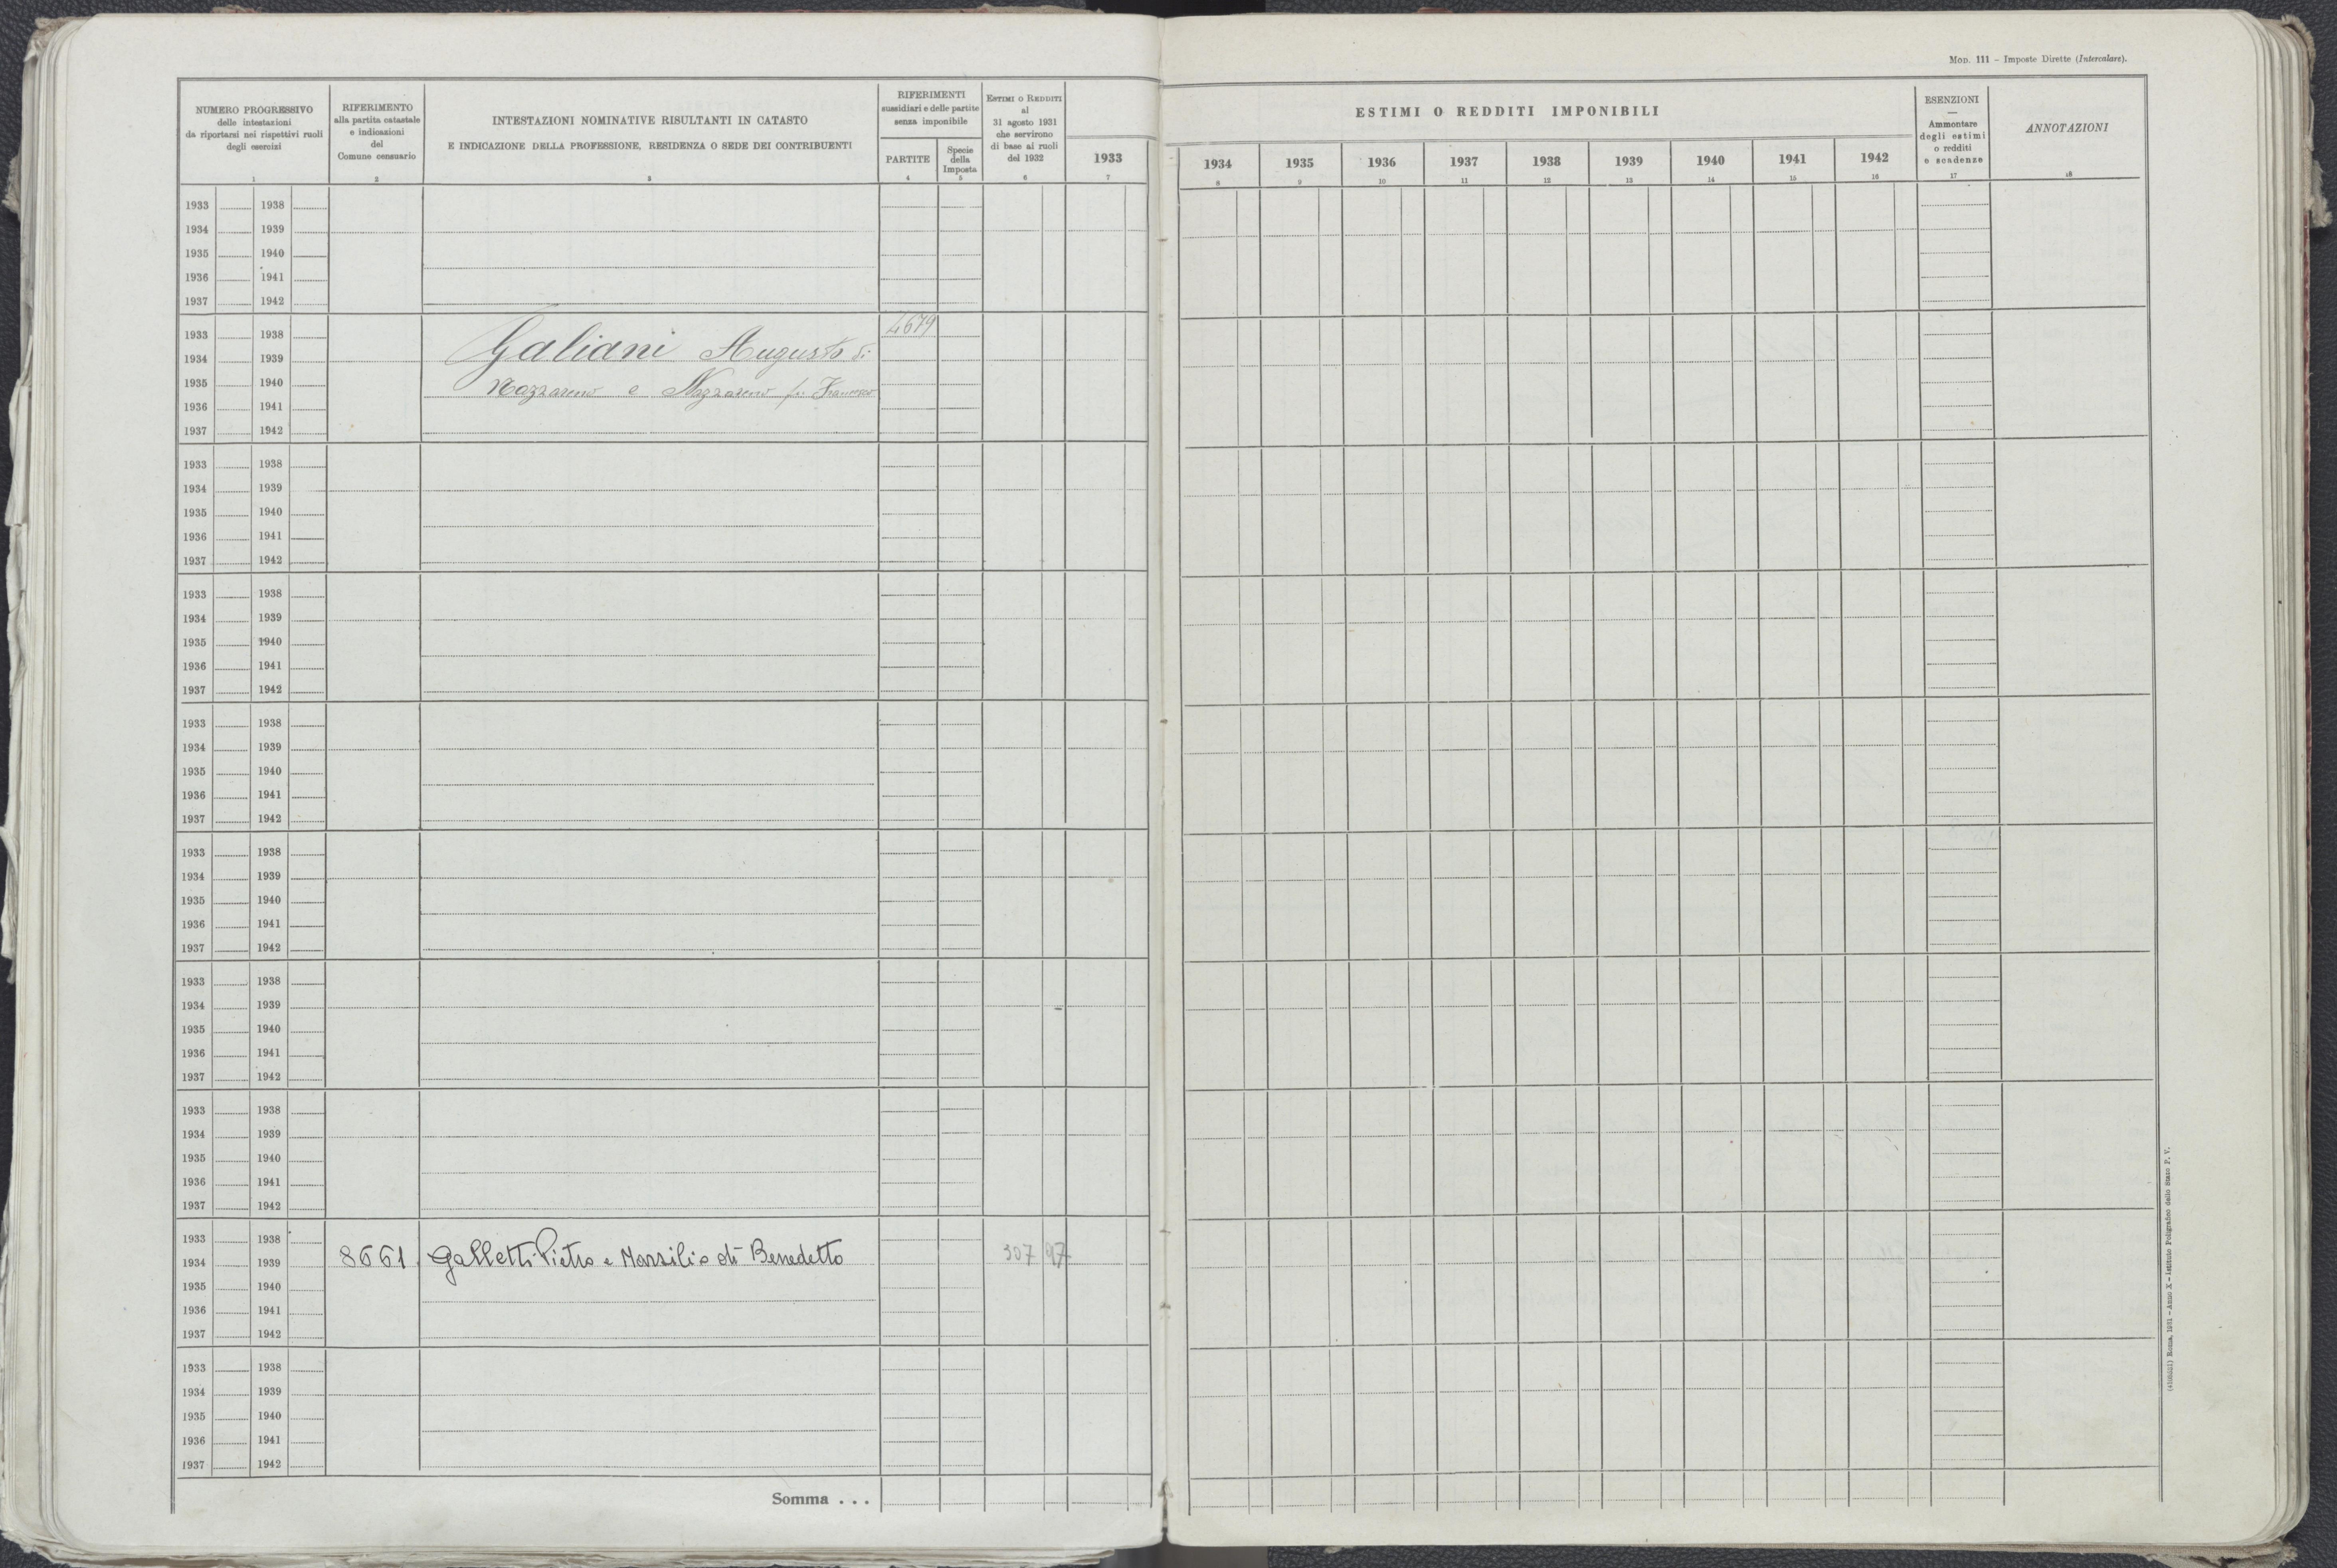 Mod. 111 – Imposte Dirette (Intercalare).
NUMERO PROGRESSIVO
delle intestazioni
da riportarsi nei rispettivi ruoli
degli esercizi
1
RIFERIMENTO
alla partita catastale
e indicazioni
del
Comune censuario
2
INTESTAZIONI NOMINATIVE RISULTANTI IN CATASTO
E INDICAZIONE DELLA PROFESSIONE, RESIDENZA O SEDE DEI CONTRIBUENTI
3
RIFERIMENTI
sussidiari e delle partite
senza imponibile
PARTITE
4
Specie
della
Imposta
5
ESTIMI O REDDITI
al
31 agosto 1931
che servirono
di base ai ruoli
del 1932
6
1933
7
ESTIMI O REDDITI IMPONIBILI
1934 1935 1936 1937 1938 1939 1940 1941 1942
8 9 10 11 12 13 14 15 16
ESENZIONI
—
Ammontare
degli estimi
o redditi
e scadenze
17
ANNOTAZIONI
18
1933 1938
1934 1939
1935 1940
1936 1941
1937 1942
1933 1938 4679
1934 1939 Galiani Augusto di
1935 1940 Nazzareno e Nazzareno fu Francesco
1936 1941
1937 1942
1933 1938
1934 1939
1935 1940
1936 1941
1937 1942
1933 1938
1934 1939
1935 1940
1936 1941
1937 1942
1933 1938
1934 1939
1935 1940
1936 1941
1937 1942
1933 1938
1934 1939
1935 1940
1936 1941
1937 1942
1933 1938
1934 1939
1935 1940
1936 1941
1937 1942
1933 1938
1934 1939
1935 1940
1936 1941
1937 1942
1933 1938
1934 1939 8661 Galletti Pietro e Marsilio di Benedetto 307 97
1935 1940
1936 1941
1937 1942
1933 1938
1934 1939
1935 1940
1936 1941
1937 1942
Somma . . .
Roma, 1931 – Anno X – Istituto Poligrafico dello Stato P. V.